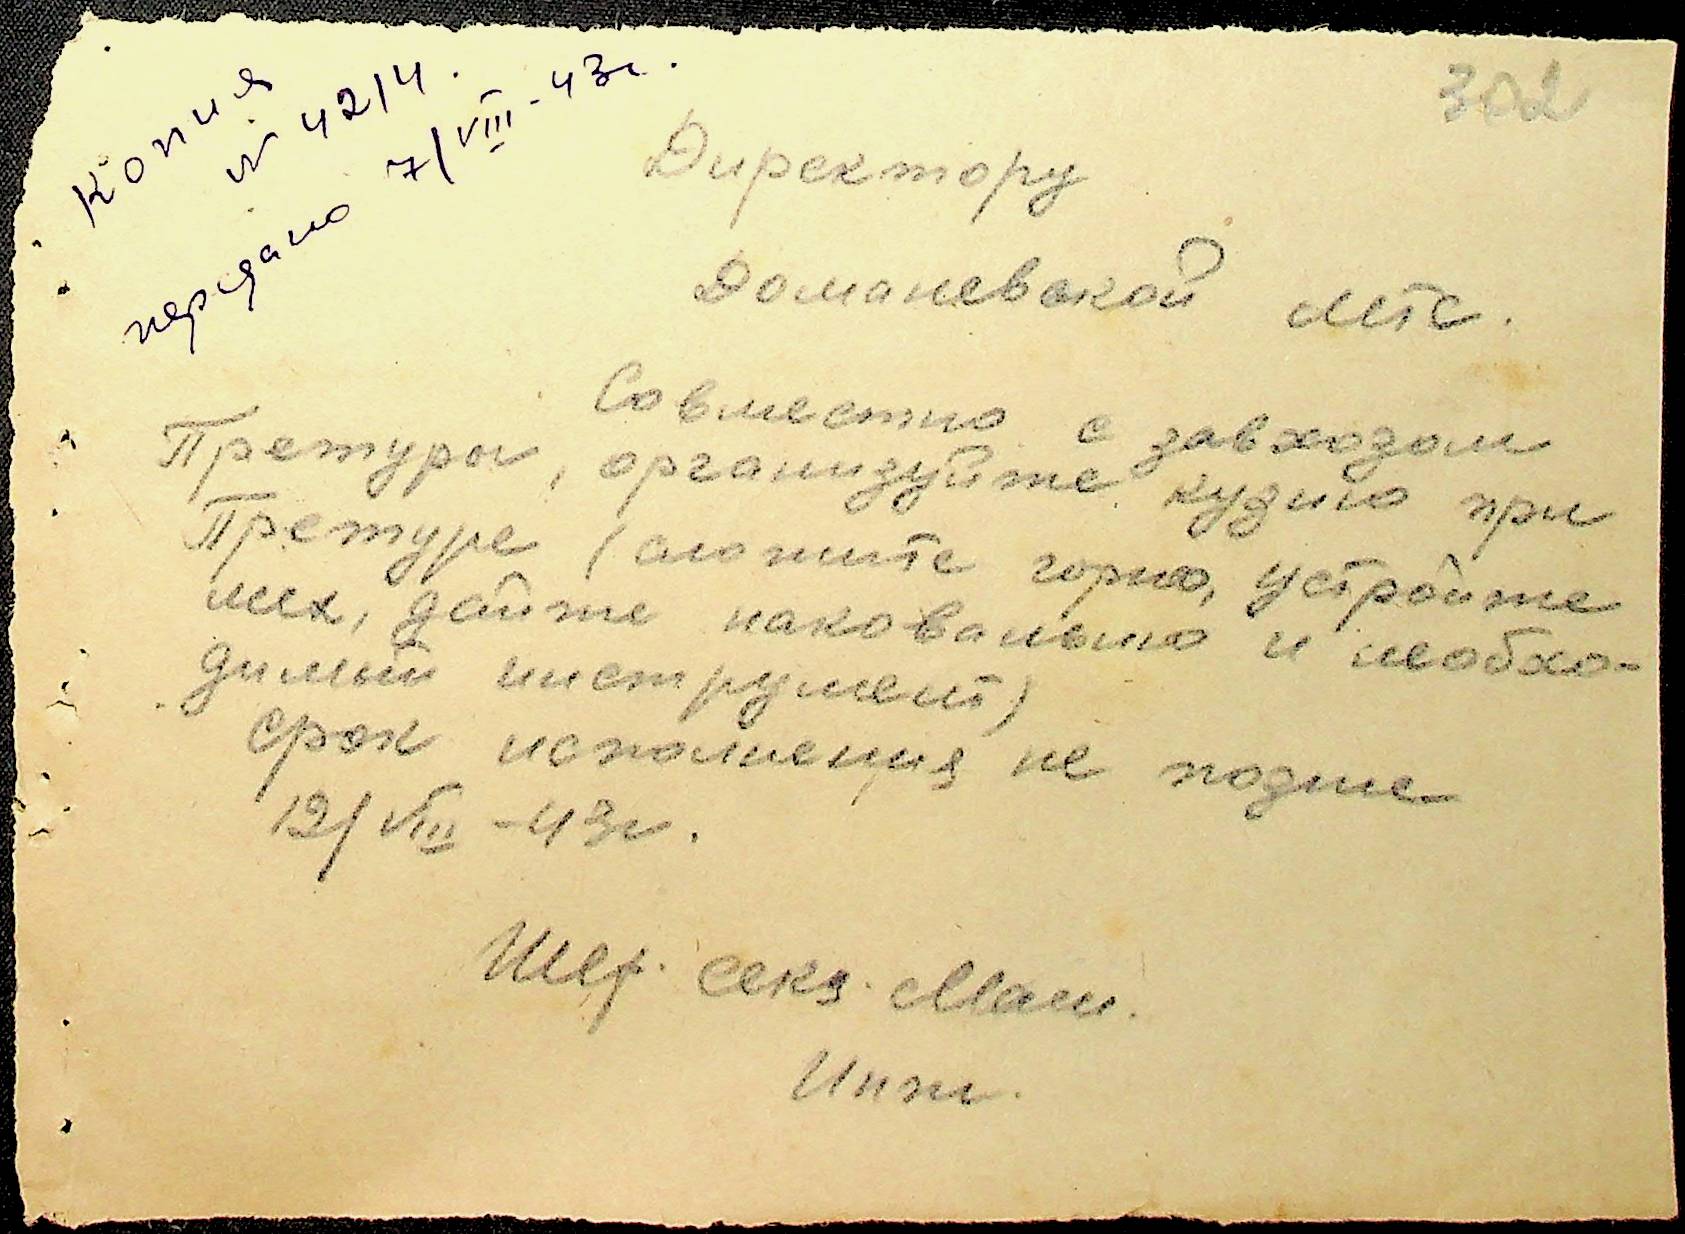 302
Копия
№ 4214.
передано 7/VIII-43г.
Директору
Доманевской МТС.
Совместно с завхозом
Претуры, организуйте кузню при
Претуре (сложите горно, устройте
мех, дайте наковальню и необхо-
димый инструмент)
срок исполнения не позже
12/VIII-43г.
Шеф. секз. Маш.
Инж.